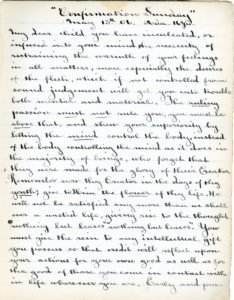 "Confirmation Sunday"
May 13th 
My dear child you have inculcated, or
infused into your mind the necessity of
restraining the warmth of your feelings
in all matters, more especially the desires
of the flesh, which if not controlled from
sound judgment will get you into trouble
both mental and material. The ruling
passion must not rule you, you must be
above that, and show your superiority by
letting the mind control the body, instead
of the body controlling the mind as it does in
the majority of beings, who forget that
they were made for the glory of their Creator.
Remember now thy Creator in the days of thy
youth; give to Him the flower of thy life. He
will not be satisfied any more than us shall
our a wasted life, giving rise to the thought
nothing but leaves nothing but leaves. You
must give the rein to any intellectual gift
you possess so that credit will reflect upon
your actions for your own good as well as for
the good of those you come in contact with
in life where ever you are. Purity and